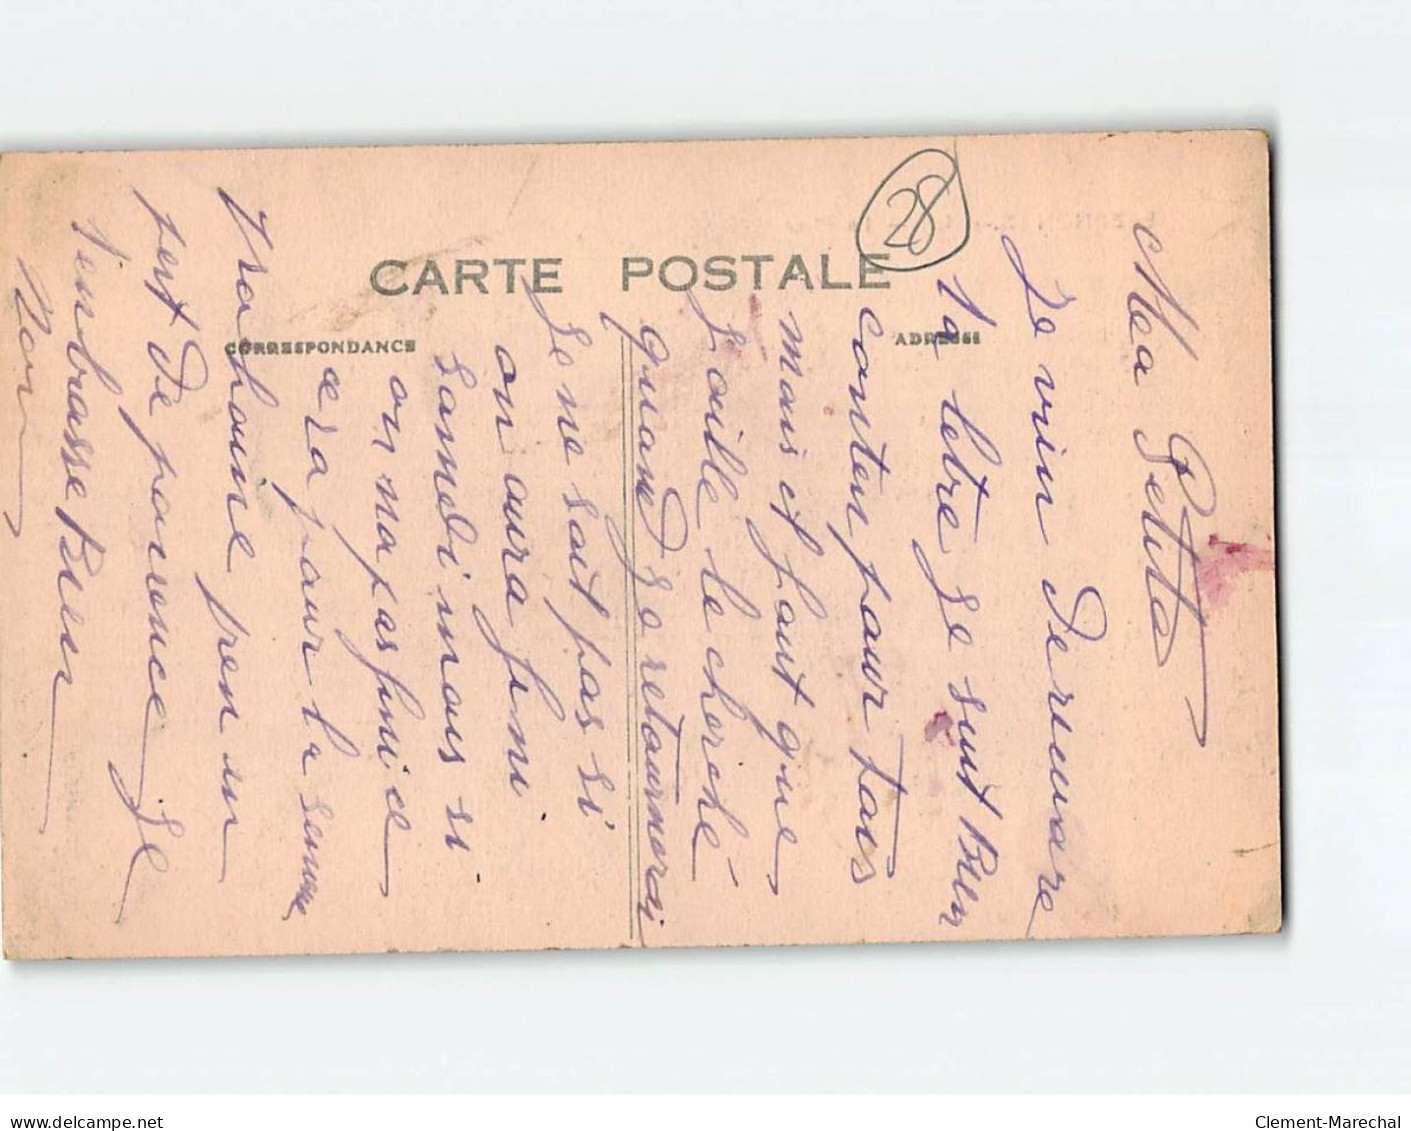 28
CARTE POSTALE
CORRESPONDANCE
ADRESSE
Ma Petite
Je vien De reuvare
Ta letre Je suit Bien
conten pour tois
mais it faut que
J oille te cherché
quand Je retournerai
Je ne sait pas si
on aura fini
samedi mais si
on na pas fini ce
cera pour la semene
prochaine pren un
peut De parience Je
T'embrasse Bien
delcampe.net
Clement-Marechal